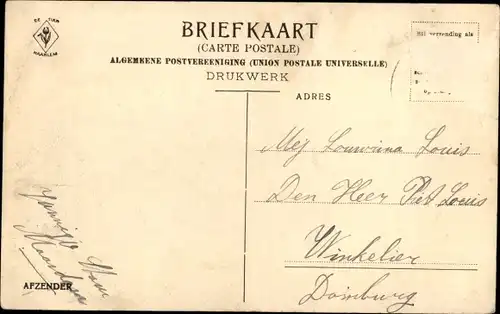 DE
HAARLEM
BRIEFKAART
(CARTE POSTALE)
ALGEMEENE POSTVEREENIGING (UNION POSTALE UNIVERSELLE)
DRUKWERK
verzending als
ADRES
Mej Louwrina Louis
Den Heer Piet Louis
Winkelier
Domburg
AFZENDER